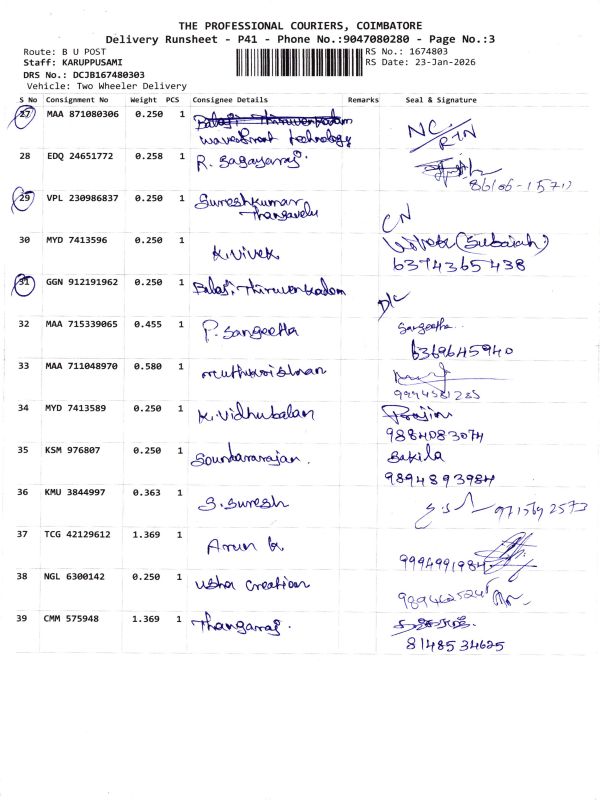 THE PROFESSIONAL COURIERS, COIMBATORE
Delivery Runsheet - P41 - Phone No.:9047080280 - Page No.:3
Route: B U POST RS No.: 1674803
Staff: KARUPPUSAMI RS Date: 23-Jan-2026
DRS No.: DCJB167480303
Vehicle: Two Wheeler Delivery
S No Consignment No Weight PCS Consignee Details Remarks Seal & Signature
27 MAA 871080306 0.250 1 Balaji Thiruvenkadam NC/RTN
technology
28 EDQ 24651772 0.258 1 R. Sagayaraj.
29 VPL 230986837 0.250 1 Sureshkumar
Thangavelu CN
30 MYD 7413596 0.250 1 K.Vivek Vivek (Subaiah)
6374365438
31 GGN 912191962 0.250 1 Balaji Thiruvenkadam D/L
32 MAA 715339065 0.455 1 P. Sangeetha Sangeetha..
6369645940
33 MAA 711048970 0.580 1 muthukrishnan
34 MYD 7413589 0.250 1 K.Vidhubalan Rojin
9884083074
35 KSM 976807 0.250 1 Soundararajan. Sakila
9894893984
36 KMU 3844997 0.363 1 S. Suresh 9715692573
37 TCG 42129612 1.369 1 Arun K 9994991984
38 NGL 6300142 0.250 1 Usha Creation
39 CMM 575948 1.369 1 Thangaraj.
8148534625